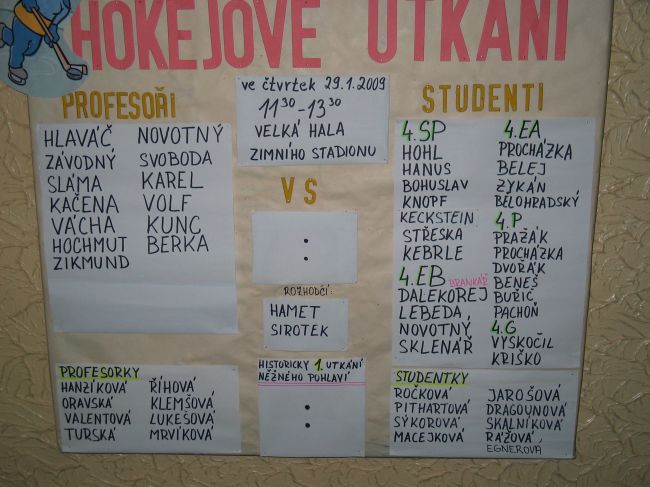 HOKEJOVÉ UTKÁNÍ
PROFESOŘI
HLAVÁČ NOVOTNÝ
ZÁVODNÝ SVOBODA
SLÁMA KAREL
KAČENA VOLF
VÁCHA KUNC
HOCHMUT BERKA
ZIKMUND
PROFESORKY
HANZÍKOVÁ ŘÍHOVÁ
ORAVSKÁ KLEMŠOVÁ
VALENTOVÁ LUKEŠOVÁ
TURSKÁ MRVÍKOVÁ
ve čtvrtek 29.1.2009
11 30 - 13 30
VELKÁ HALA
ZIMNÍHO STADIONU
VS
:
ROZHODČÍ:
HAMET
SIROTEK
HISTORICKY 1. UTKÁNÍ
NĚŽNÉHO POHLAVÍ
:
:
STUDENTI
4.SP
HOHL
HANUS
BOHUSLAV
KNOPF
KECKSTEIN
STŘESKA
KEBRLE
4.EB BRANKÁŘ
DALEKOREJ
LEBEDA
NOVOTNÝ
SKLENÁŘ
4.EA
PROCHÁZKA
BELEJ
ZYKÁN
BĚLOHRADSKÝ
4.P
PRAŽÁK
PROCHÁZKA
DVOŘÁK
BENEŠ
BUŘIČ
PACHOŇ
4.G
VYSKOČIL
KRIŠKO
STUDENTKY
ROČKOVÁ JAROŠOVÁ
PITHARTOVÁ DRAGOUNOVÁ
SÝKOROVÁ SKALNÍKOVÁ
MACEJKOVÁ RÁŽOVÁ,
EGNEROVÁ